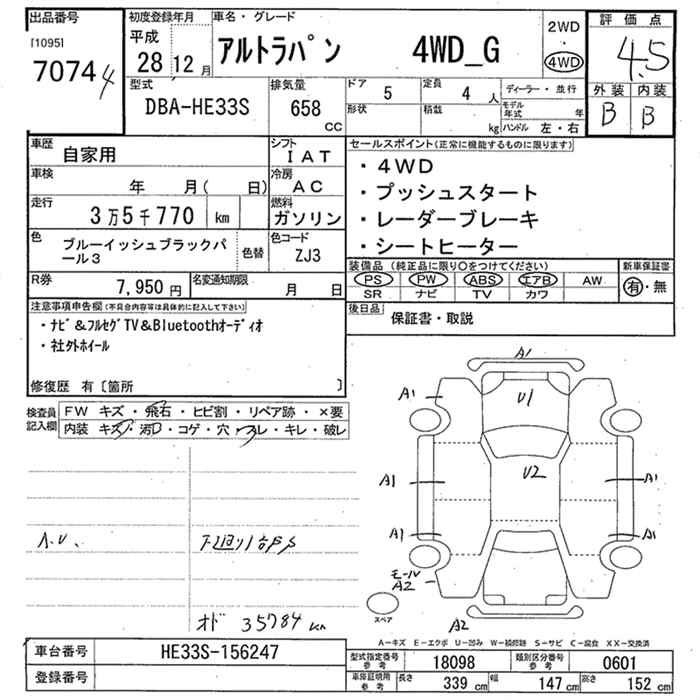 出品番号
[1095]
7074 4
初度登録年月
平成
28 12 月
車名・グレード
アルトラパン 4WD_G
2WD
・
4WD
評価点
4.5
外装 内装
B B
型式
DBA-HE33S
排気量
658
CC
ドア
5
定員
4 人
形状
積載
kg
ディーラー・並行
モデル年式 年
ハンドル 左・右
車歴
自家用
シフト
IAT
車検
年 月( 日)
冷房
AC
走行
3万5千770 km
燃料
ガソリン
色
ブルーイッシュブラックパール3
色替
色コード
ZJ3
R券
7,950 円
名変通知期限
月 日
セールスポイント(正常に機能するものに限ります)
・4WD
・プッシュスタート
・レーダーブレーキ
・シートヒーター
装備品(純正品に限り○をつけてください)
PS PW ABS エアB AW
SR ナビ TV カワ
新車保証書
有・無
後日品
保証書・取説
注意事項申告欄(不具合内容等は具体的に記入して下さい)
・ナビ&フルセグTV&Bluetoothオーディオ
・社外ホイール
修復歴 有〔箇所 〕
検査員記入欄
FW キズ・飛石・ヒビ割・リペア跡・×要
内装 キズ・汚レ・コゲ・穴・スレ・キレ・破レ
オド 35784 km
A1
A1
U1
A1
U2
A1
A1
A1
モール
A2
A2
スペア
A-キズ E-エクボ U-凹み W-補修跡 S-サビ C-腐食 XX-交換済
車台番号
HE33S-156247
登録番号
型式指定番号
参考
18098
類別区分番号
参考
0601
車庫証明用
参考
長さ
339 cm
幅
147 cm
高さ
152 cm